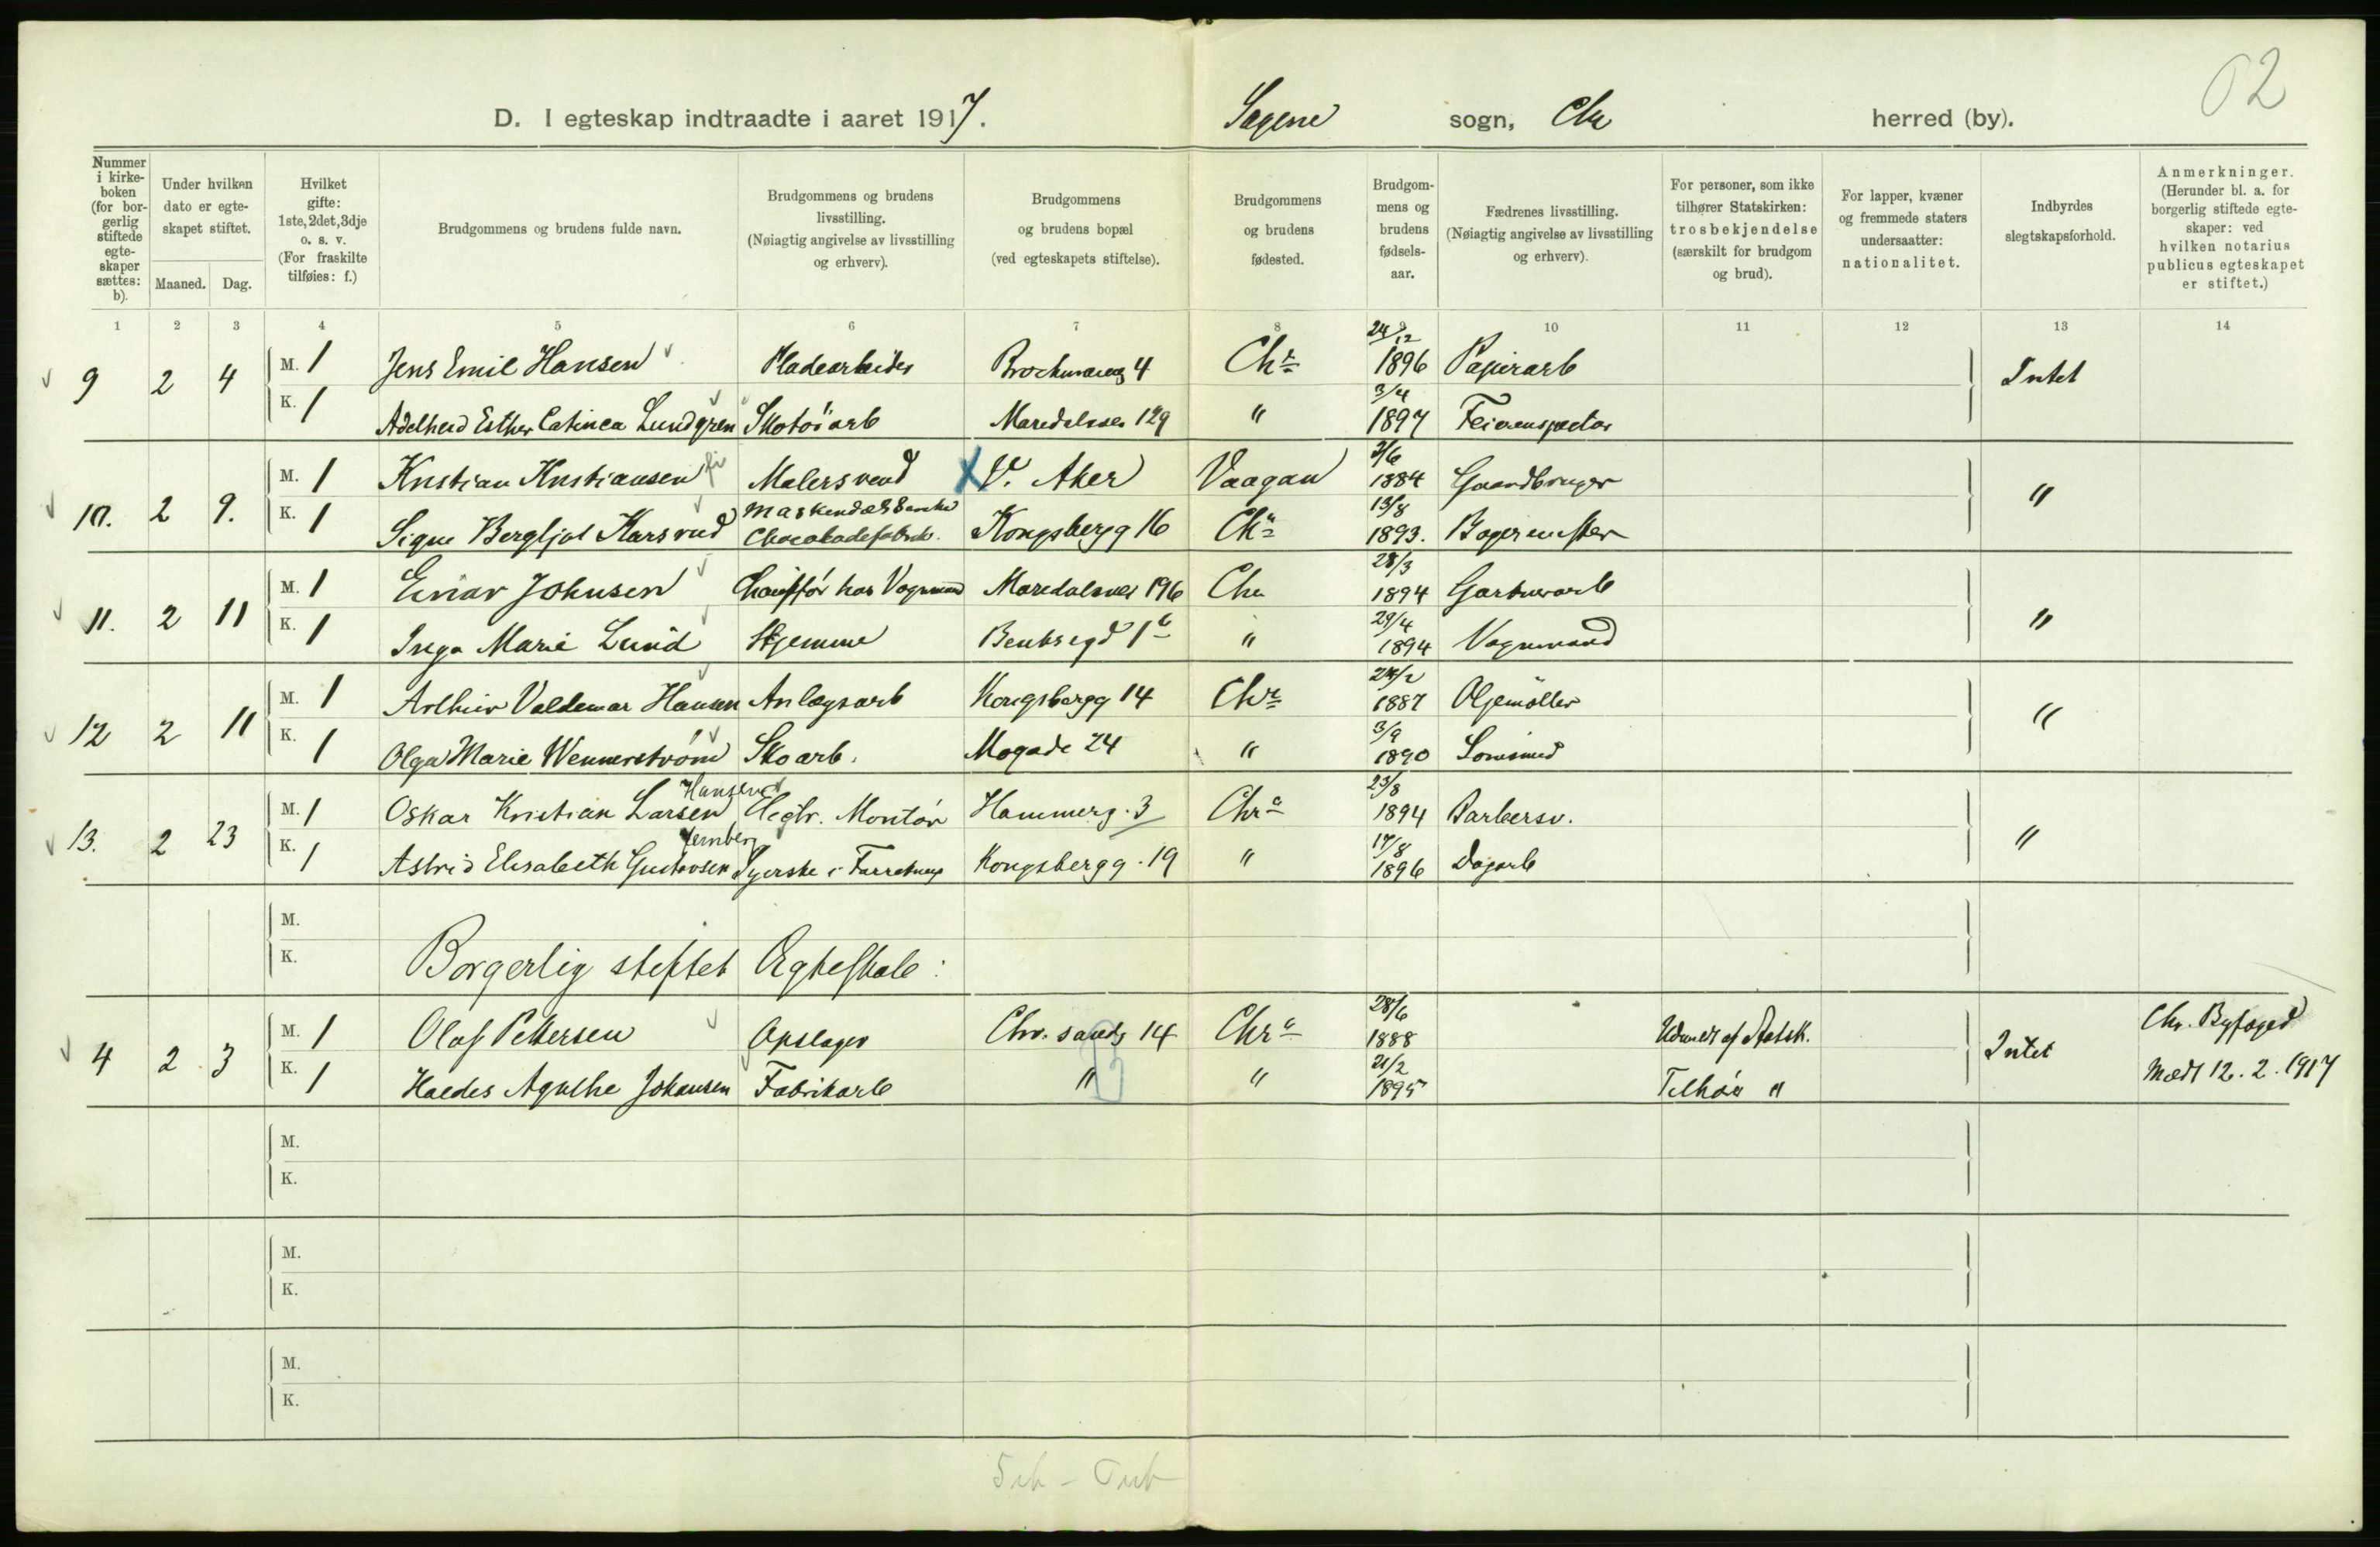 02
D. I egteskap indtraadte i aaret 1917. Sagene sogn, Chr herred (by).
Nummer i kirkeboken (for borgerlig stiftede egteskaper sættes: b).
Under hvilken dato er egteskapet stiftet.
Maaned. Dag.
Hvilket gifte: 1ste, 2det, 3dje o. s. v. (For fraskilte tilføies: f.)
Brudgommens og brudens fulde navn.
Brudgommens og brudens livsstilling. (Nøiagtig angivelse av livsstilling og erhverv).
Brudgommens og brudens bopæl (ved egteskapets stiftelse).
Brudgommens og brudens fødested.
Brudgommens og brudens fødselsaar.
Fædrenes livsstilling. (Nøiagtig angivelse av livsstilling og erhverv).
For personer, som ikke tilhører Statskirken: trosbekjendelse (særskilt for brudgom og brud).
For lapper, kvæner og fremmede staters undersaatter: nationalitet.
Indbyrdes slegtskapsforhold.
Anmerkninger. (Herunder bl. a. for borgerlig stiftede egteskaper: ved hvilken notarius publicus egteskapet er stiftet.)
1 2 3 4 5 6 7 8 9 10 11 12 13 14
9 2 4 M. 1 Jens Emil Hansen Pladearbeider 4 Chr 24/12 1896 Papirarb Intet
K. 1 Adelheid Esther Catinca Lundgren Skotøiarb Maridalsvei 129 " 3/4 1897
10. 2 9. M. 1 Kristian Kristiansen Malersvend V. Aker Vaagan 2/6 1884 Gaardbruger "
K. 1 Signe Bergljot Karsrud Chocoladefabrik. Kongsbergg 16 Chr 13/8 1893. Bagermester
11. 2 11 M. 1 Einar Johnsen Chauffør hos Vognmand Maridalsvei 196 Chr 28/3 1894 Gartnerarb "
K. 1 Inga Marie Lund Hjemme Bentsegd 1 " 29/4 1894 Vognmand
12 2 11 M. 1 Arthur Valdemar Hansen Anlægsarb Kongsbergg 14 Chr 24/2 1887 Oljemøller "
K. 1 Olga Marie Wennerstrøm Skoarb. Mogade 24 " 3/9 1890
13. 2 23 M. 1 Oskar Kristian Larsen Hansen Elegtr. Montør Hammerg. 3 Chra 23/8 1894 Barbersv. "
K. 1 Astrid Elisabeth Gustavsen Jernberg Syerske i Kongsbergg. 19 " 17/8 1896 Dagarb
M.
K. Borgerlig stiftet Ægteskab:
4 2 3 M. 1 Olaf Pettersen Opslager Chr. sandg 14 Chra 28/6 1888 Udmeldt af Statsk. Intet Chr. Byfoged
K. 1 Haldis Agathe Johansen Fabrikarb " " 21/2 1895 Tilhør " Medt 12. 2. 1917
M.
K.
M.
K.
M.
K.